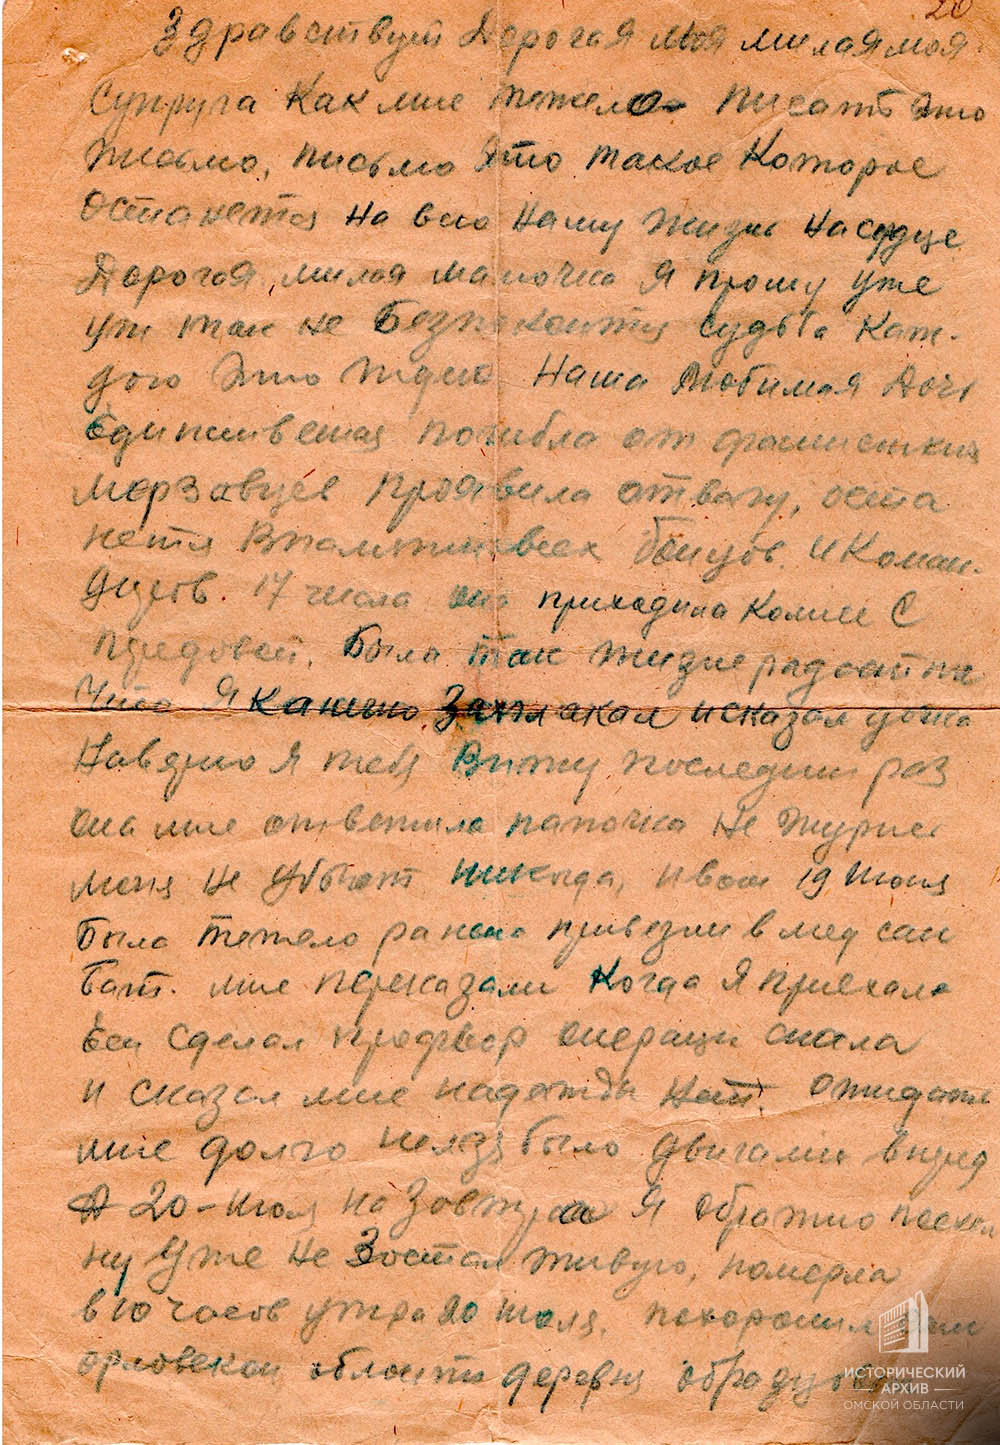 20
Здравствуй Дорогая моя милая моя
Супруга Как мне тежело писать это
писмо, письмо это такое Которое
останется на всю нашу жизнь на сердце
Дорогая, милая мамочка я прошу уже
уж так не безпокоится судьба Каж-
дого это ждет Наша любимая дочь
Единственая погибла от фашистких
мерзавцев проявила отвагу, оста
нется впамяти всех бойцов и Коман-
диров. 17 числа она приходила Комне С
придовой, была так жизнерадостна
Что я Конечно заплакал и сказал дочка
наверно я тебя вижу последний раз
она мне ответила папочка не журись
меня не убьют никогда, и вот 19 июля
была тежело ранена привезли в мед сан
бат. мне переказали Когда я приехал
Ей сделал профэсор операци
и сказал мне надежды нет. ожидать
мне долго нелзя было двигалис вперед
А 20-июля на Зовтра я обратно поехал
ну уже не Зостал живую, померла
в 10 часов утра 20 июля. похоронил
орловской области деревня образцово
ИСТОРИЧЕСКИЙ
АРХИВ
ОМСКОЙ ОБЛАСТИ